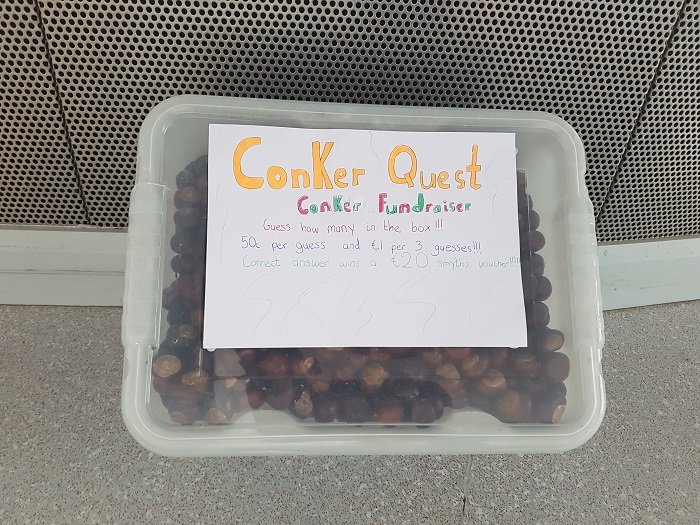 ConKer Quest
ConKer Fundraiser
Guess how many in the box!!!
50c per guess and €1 per 3 guesses!!!
Correct answer wins a €20 smyths voucher!!!!!